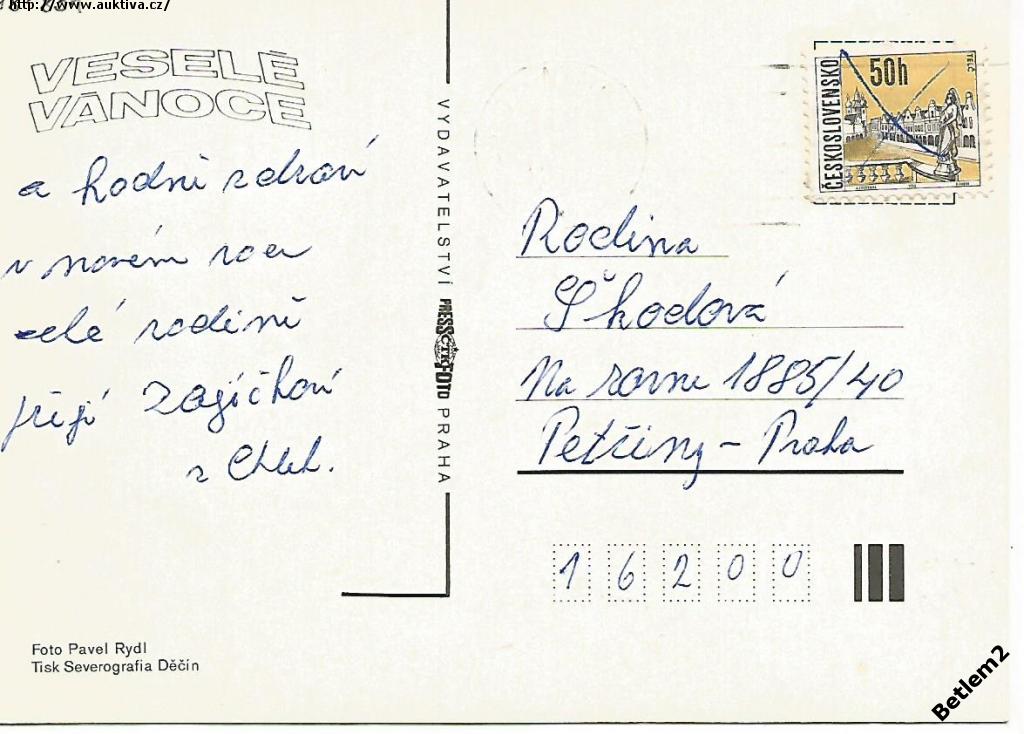 http://www.auktiva.cz/
VESELÉ
VÁNOCE
a hodně zdraví
v novém roce
celé rodině
přejí Zajíčkovi
z Chch.
VYDAVATELSTVÍ PRESSFOTO PRAHA
ČTK
ČESKOSLOVENSKO
50h
TELČ
Rodina
Škodová
Na rovni 1885/40
Petřiny - Praha
16200
Foto Pavel Rydl
Tisk Severografia Děčín
Betlem2